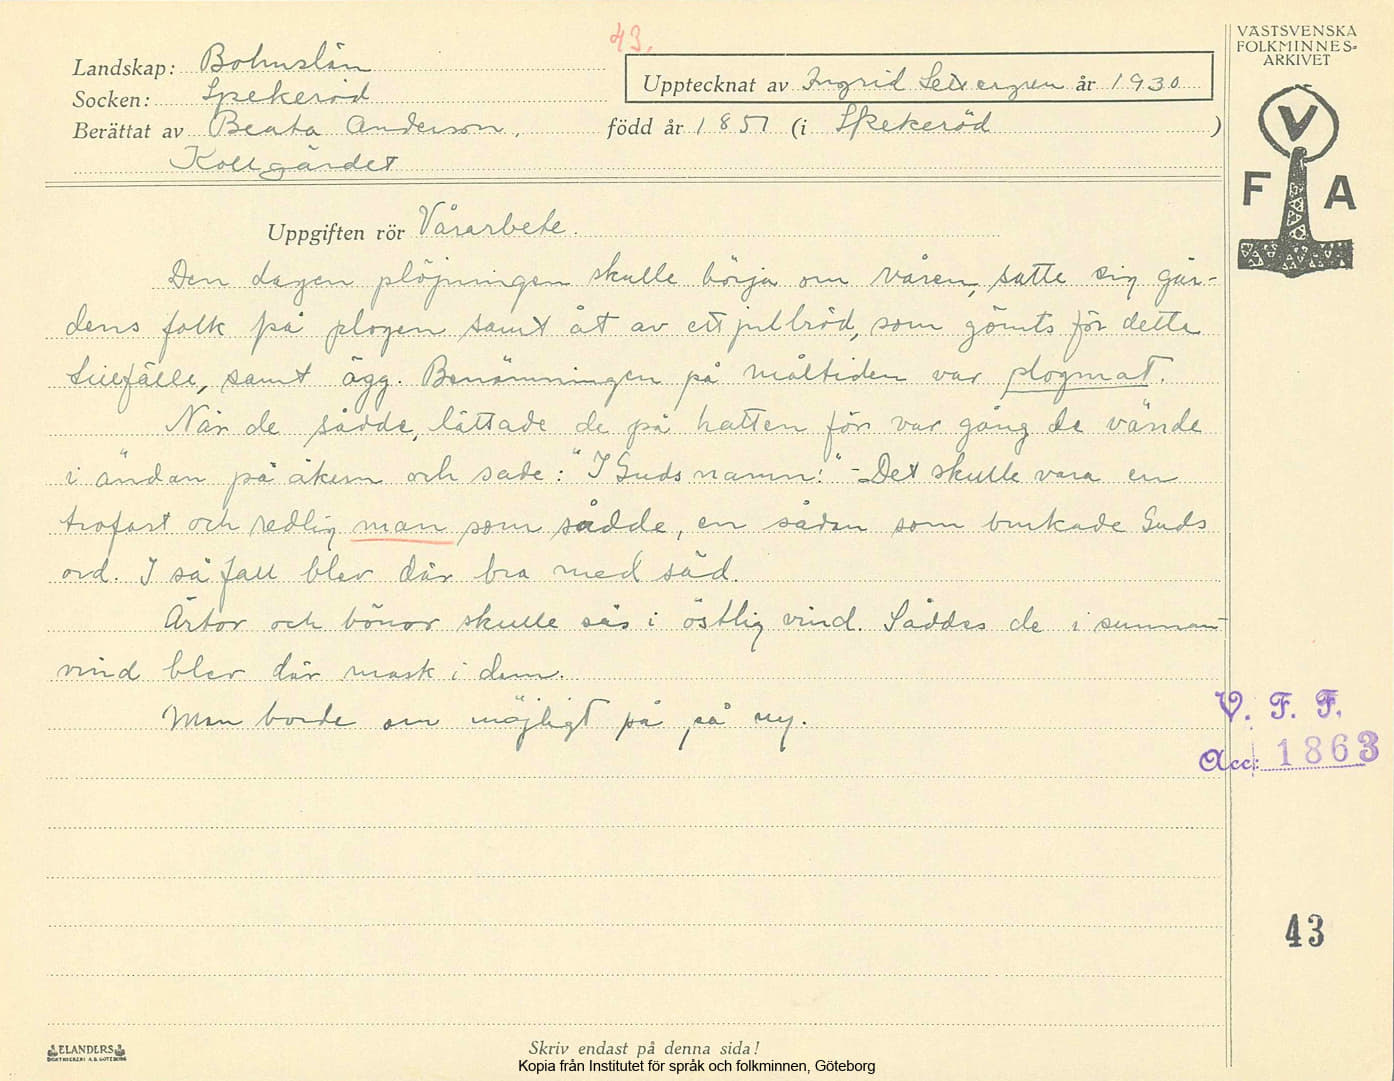 43.
VÄSTSVENSKA
FOLKMINNES-
ARKIVET
Landskap: Bohuslän
Socken: Spekeröd
Upptecknat av Ingrid år 1930
Berättat av Beata Anderson, född år 1851 (i Spekeröd )
Kollgärdet
V
F A
Uppgiften rör Vårarbete.
Den dagen plöjningen skulle börja om våren, satte sig går-
dens folk på plogen samt åt av ett julbröd, som gömts för detta
tillfälle, samt ägg. Benämningen på måltiden var plogmat.
När de sådde, lättade de på hatten för var gång de vände
i ändan på åkern och sade: "I Guds namn!" - Det skulle vara en
trofast och redlig man som sådde, en sådan som brukade Guds
ord. I så fall blev där bra med säd.
Ärtor och bönor skulle sås i östlig vind. Såddes de i sunnan-
vind blev där mask i dem.
Man borde om möjligt på, så ny.
V. F. F.
Acc: 1863
43
ELANDERS
BOKTRYCKERI A.B. GÖTEBORG
Skriv endast på denna sida!
Kopia från Institutet för språk och folkminnen, Göteborg